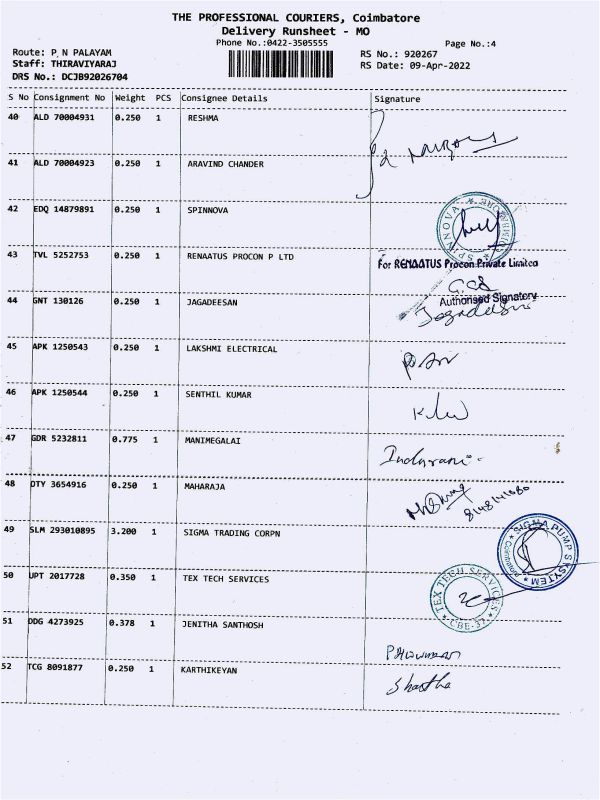 THE PROFESSIONAL COURIERS, Coimbatore
Delivery Runsheet - MO
Phone No.:0422-3505555
Page No.:4
Route: P N PALAYAM
RS No.: 920267
Staff: THIRAVIYARAJ
RS Date: 09-Apr-2022
DRS No.: DCJB92026704
S No Consignment No Weight PCS Consignee Details Signature
40 ALD 70004931 0.250 1 RESHMA
41 ALD 70004923 0.250 1 ARAVIND CHANDER
42 EDQ 14879891 0.250 1 SPINNOVA
SPINNOVA
43 TVL 5252753 0.250 1 RENAATUS PROCON P LTD
For RENAATUS Procon Private Limited
Authorised Signatory
44 GNT 130126 0.250 1 JAGADEESAN
Jagadeesan
45 APK 1250543 0.250 1 LAKSHMI ELECTRICAL
46 APK 1250544 0.250 1 SENTHIL KUMAR
47 GDR 5232811 0.775 1 MANIMEGALAI
Indurani
48 OTY 3654916 0.250 1 MAHARAJA
49 SLM 293010895 3.200 1 SIGMA TRADING CORPN
SIGMA PUMP SYSTEM
50 UPT 2017728 0.350 1 TEX TECH SERVICES
TEX TECH SERVICES
CBE-37
51 DDG 4273925 0.378 1 JENITHA SANTHOSH
52 TCG 8091877 0.250 1 KARTHIKEYAN